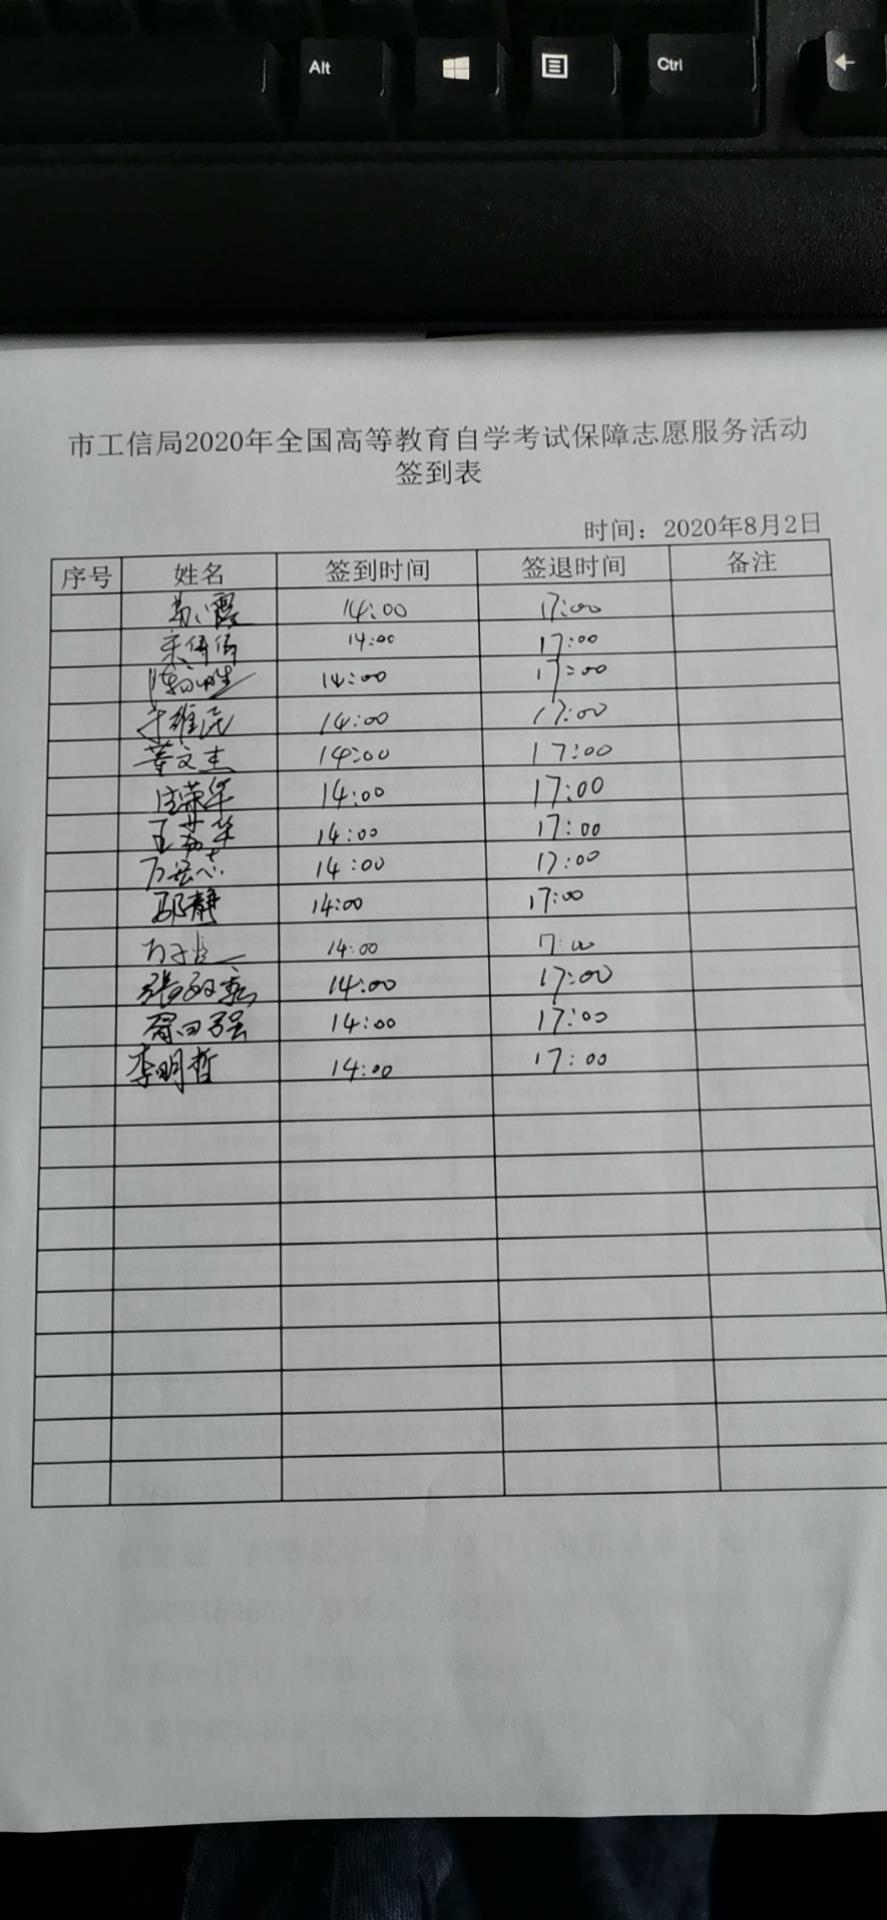 Alt
Ctrl
市工信局2020年全国高等教育自学考试保障志愿服务活动
签到表
时间：2020年8月2日
序号 姓名 签到时间 签退时间 备注
14:00 17:00
14:00 17:00
14:00 17:00
14:00 17:00
董文杰 14:00 17:00
14:00 17:00
14:00 17:00
14:00 17:00
静 14:00 17:00
14:00 7:00
14:00 17:00
14:00 17:00
李明哲 14:00 17:00